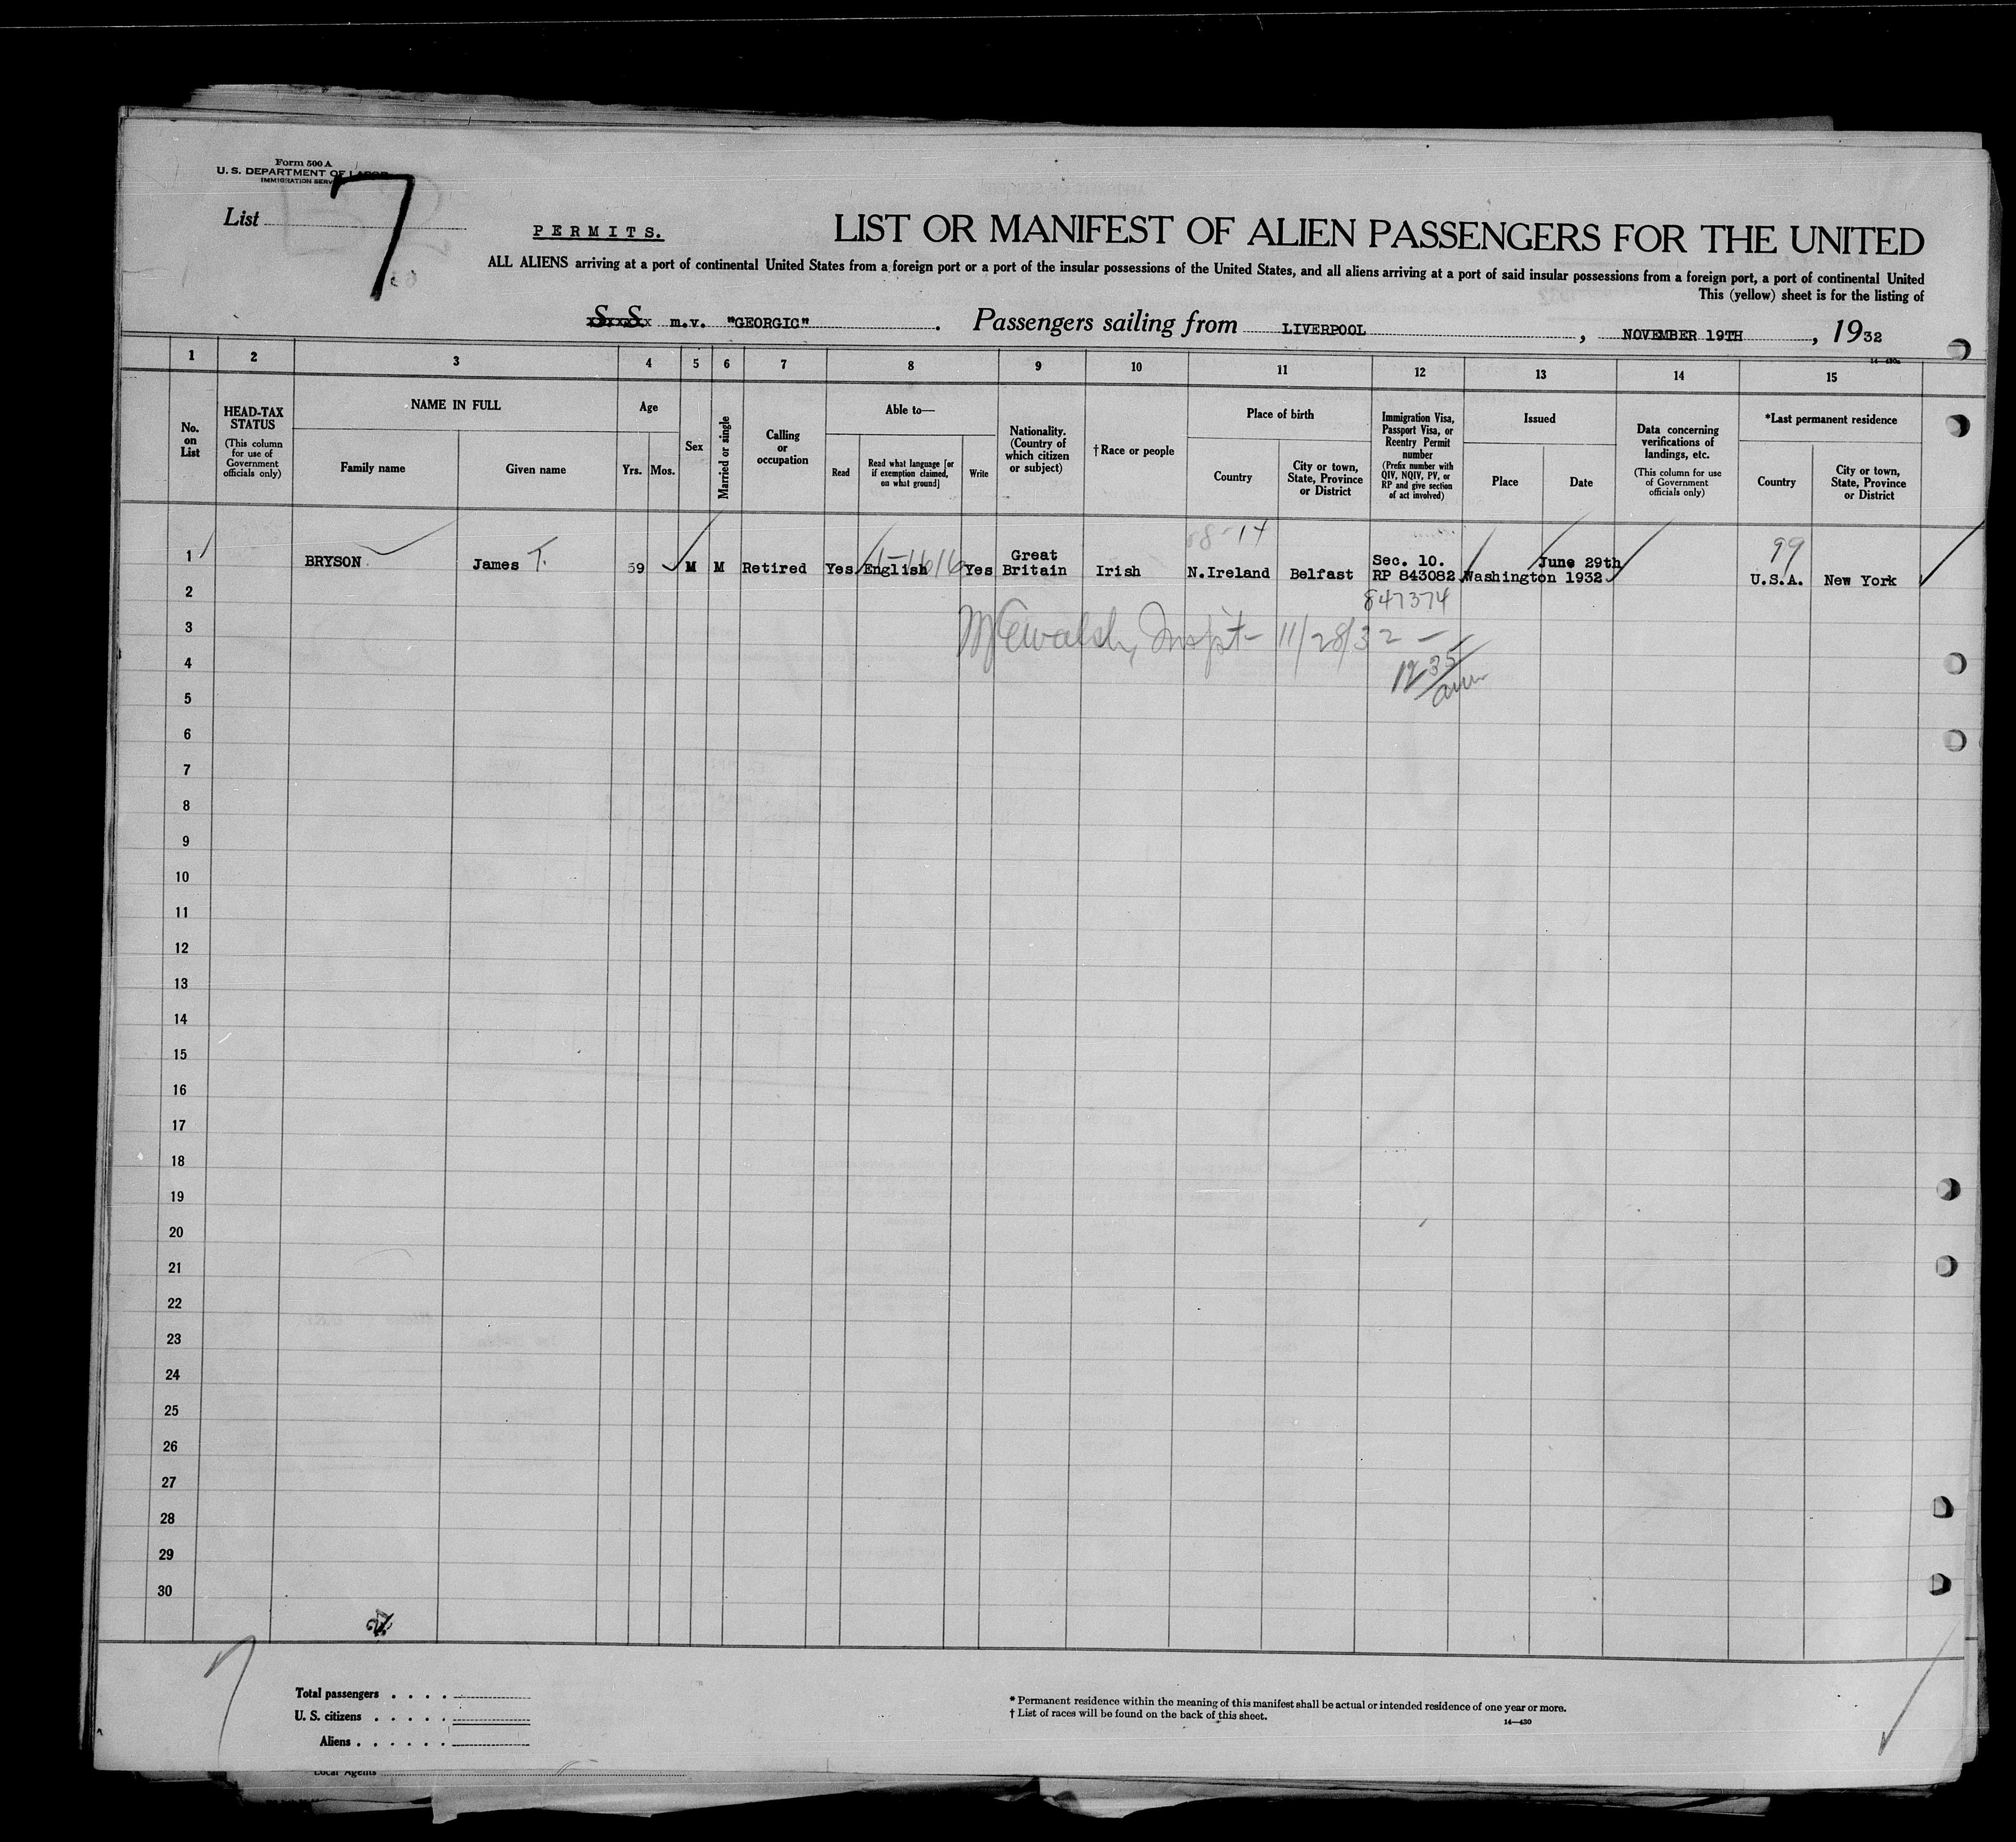 Form 500 A
U. S. DEPARTMENT OF LABOR
IMMIGRATION SERV
List 7
PERMITS.
LIST OR MANIFEST OF ALIEN PASSENGERS FOR THE UNITED
ALL ALIENS arriving at a port of continental United States from a foreign port or a port of the insular possessions of the United States, and all aliens arriving at a port of said insular possessions from a foreign port, a port of continental United
This (yellow) sheet is for the listing of
S. S. m.v. "GEORGIC" . Passengers sailing from LIVERPOOL , NOVEMBER 19TH , 1932
14-430a
1 2 3 4 5 6 7 8 9 10 11 12 13 14 15
No. on List
HEAD-TAX STATUS
(This column for use of Government officials only)
NAME IN FULL
Family name
Given name
Age
Yrs.
Mos.
Sex
Married or single
Calling or occupation
Able to—
Read
Read what language [or if exemption claimed, on what ground]
Write
Nationality. (Country of which citizen or subject)
†Race or people
Place of birth
Country
City or town, State, Province or District
Immigration Visa, Passport Visa, or Reentry Permit number
(Prefix number with QIV, NQIV, PV, or RP and give section of act involved)
Issued
Place
Date
Data concerning verifications of landings, etc.
(This column for use of Government officials only)
*Last permanent residence
Country
City or town, State, Province or District
1 BRYSON James T. 59 M M Retired Yes English Yes Great Britain Irish N.Ireland Belfast Sec. 10. RP 843082 Washington June 29th 1932 99 U.S.A. New York
847374
2
3
11/28/32
4
5
6
7
8
9
10
11
12
13
14
15
16
17
18
19
20
21
22
23
24
25
26
27
28
29
30
Total passengers . . . .
U. S. citizens . . . . .
Aliens . . . . . .
* Permanent residence within the meaning of this manifest shall be actual or intended residence of one year or more.
† List of races will be found on the back of this sheet.
14—430
Local Agents